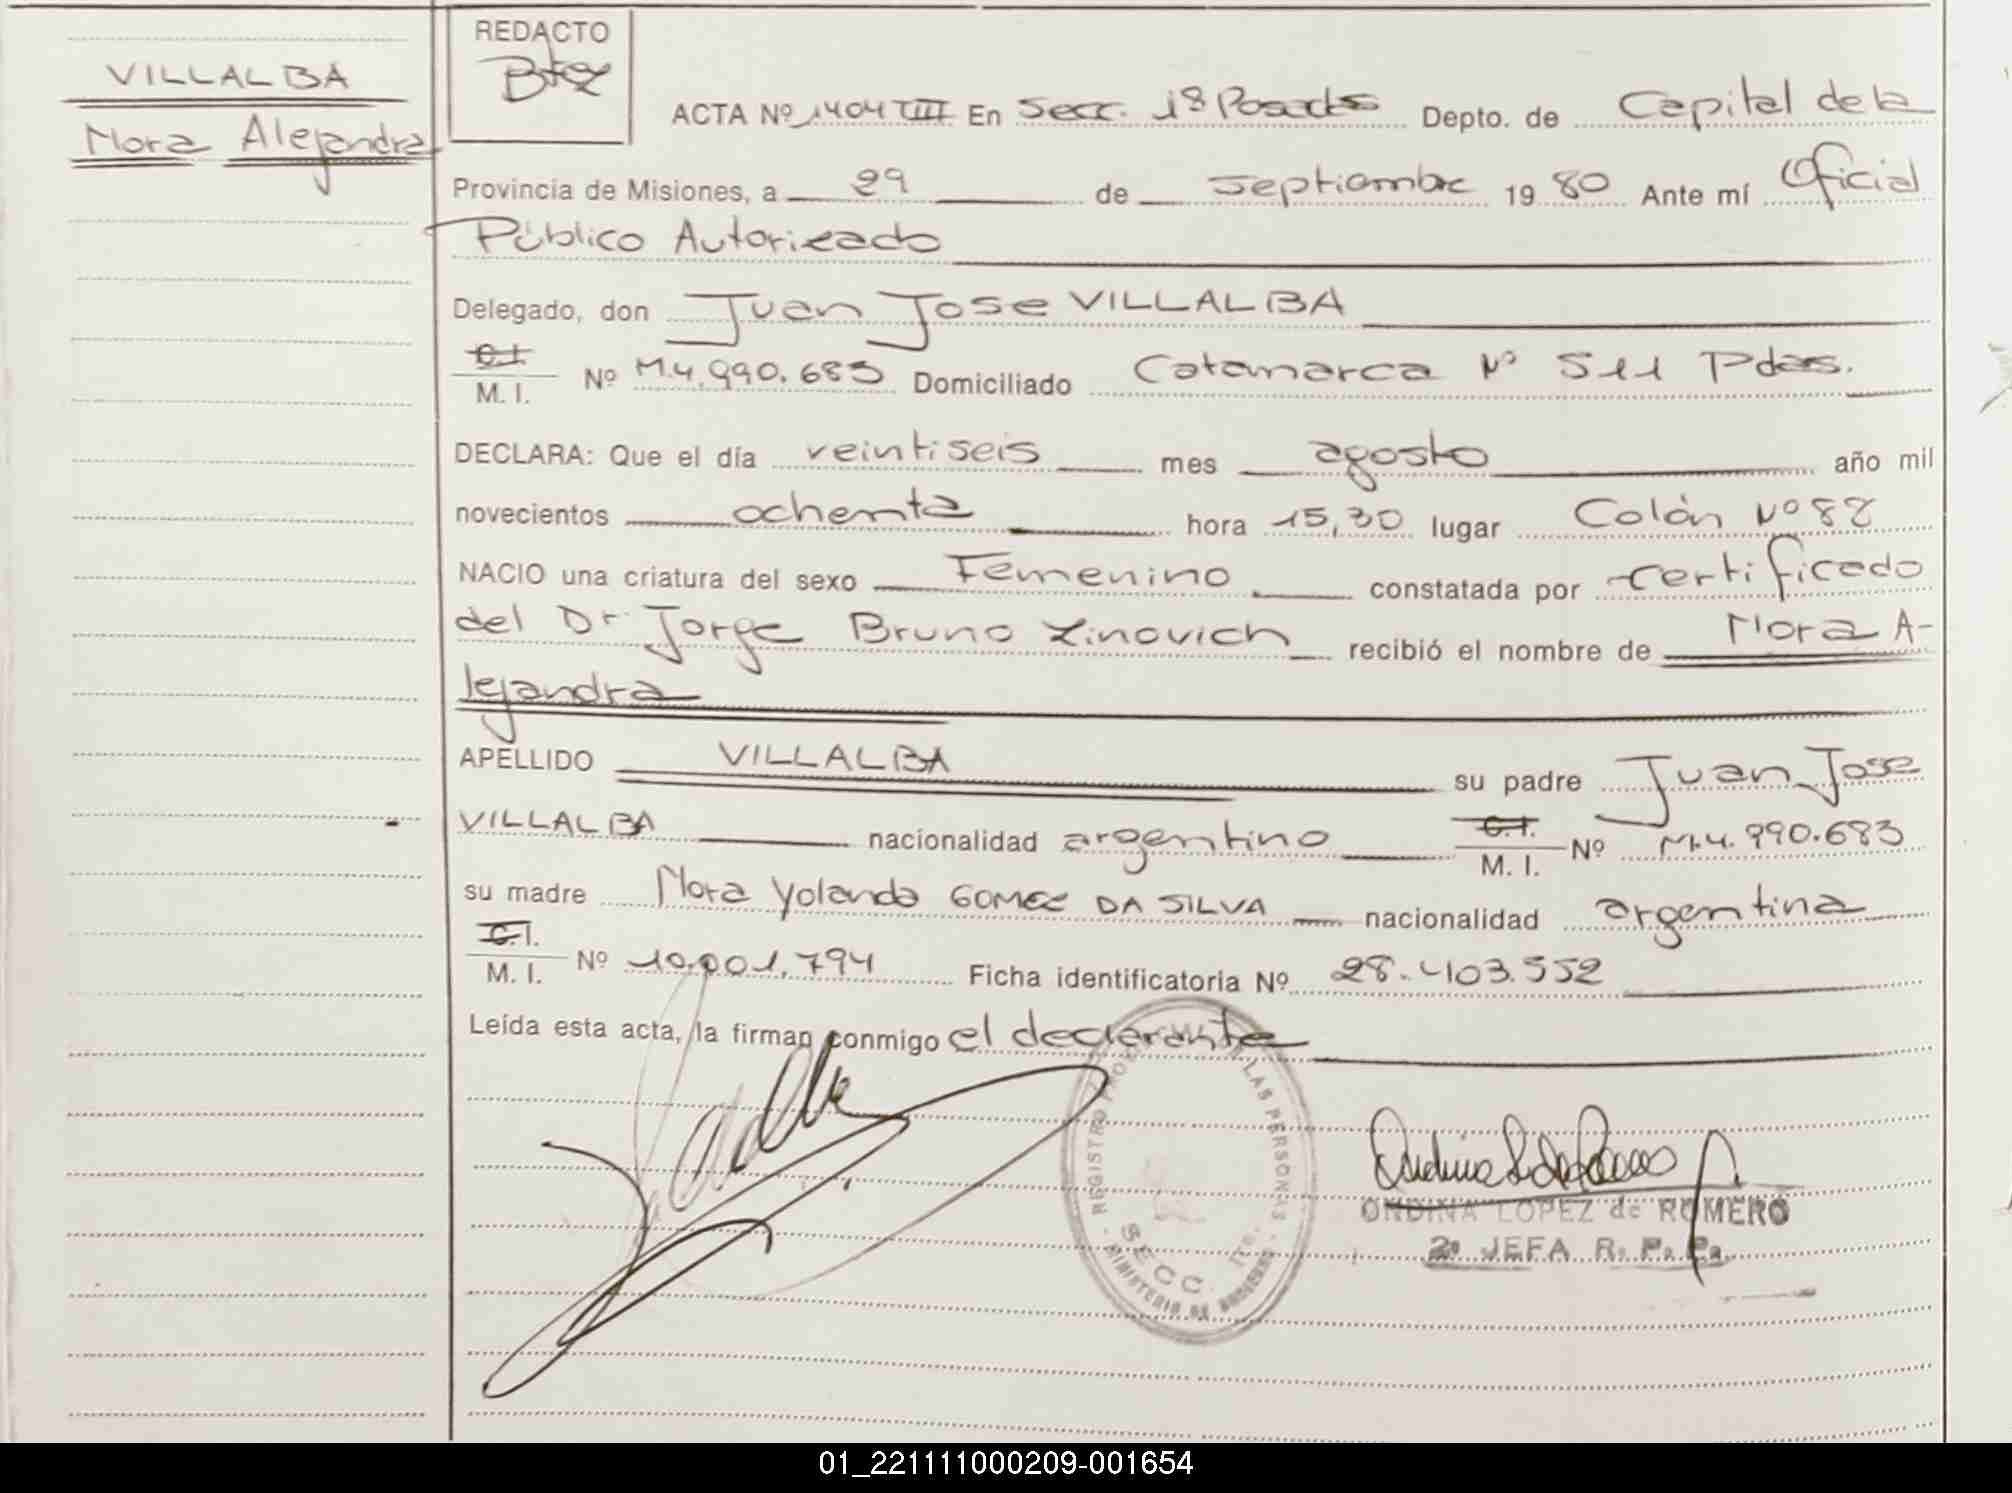 VILLALBA
Nora Alejandra
REDACTO
ACTA Nº 1404 TIII En Secc. 1ª Posadas Depto. de Capital de la
Provincia de Misiones, a 29 de septiembre 19 80 Ante mí Oficial
Público Autorizado
Delegado, don Juan Jose VILLALBA
C.I.
M. I. Nº M.4.990.683 Domiciliado Catamarca Nº 511 Pdas.
DECLARA: Que el día veintiseis mes agosto año mil
novecientos ochenta hora 15,30 lugar Colón Nº 88
NACIO una criatura del sexo Femenino constatada por certificado
del Dr Jorge Bruno Zinovich recibió el nombre de Nora A-
lejandra
APELLIDO VILLALBA su padre Juan Jose
VILLALBA nacionalidad argentino C.I. M. I. Nº M.4.990.683
su madre Nora Yolanda GOMEZ DA SILVA nacionalidad argentina
C.I.
M. I. Nº 10.001.794 Ficha identificatoria Nº 28.403.552
Leída esta acta, la firman conmigo el declarante
REGISTRO LAS PERSONAS
SECC.
MINISTERIO DE GOBIERNO
ONDINA LOPEZ de ROMERO
2ª JEFA R. P. P.
01_221111000209-001654